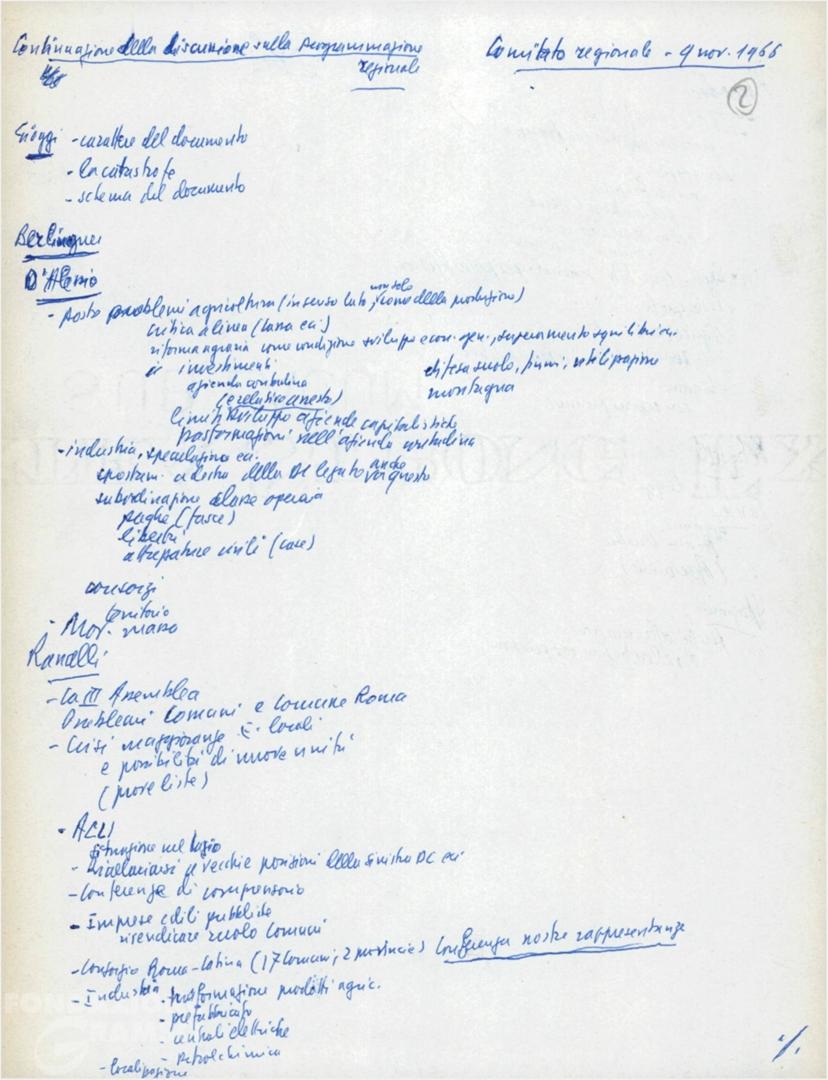 Continuazione della discussione sulla programmazione regionale
Comitato regionale - 9 nov. 1966
2
- carattere del documento
- la catastrofe
- schema del documento
Berlinguer
D'Alessio
- posto problemi agricoltura (in senso lato, non solo come della produzione)
critica a linea (
riforma agraria come condizione sviluppo econ. gen., superamento squilibri ecc.
investimenti
difesa suolo, fiumi, utilizzazione
montagna
azienda contadina
(e relativo anesto)
limiti sviluppo aziende capitalistiche
trasformazioni nell'azienda contadina
- industria, speculazione ecc.
spostam. a destra della DC legato anche a questo
subordinazione classe operaia
paghe (fasce)
libertà
attrezzature civili (case)
consorzi
territorio
- Mov. massa
Ranalli
- La III Assemblea
Problemi Comuni e Comune Roma
- Crisi maggioranze E. locali
e possibilità di nuove unità
(nuove liste)
- ACLI
situazione nel Lazio
- Riallacciarsi a vecchie posizioni della sinistra DC ecc
- Conferenze di comprensorio
- Imprese edili pubbliche
rivendicare ruolo Comuni
- Consorzio Roma-Latina (17 Comuni, 2 provincie) Conferenza nostre rappresentanze
- Industria - trasformazione prodotti agric.
- prefabbricato
- centrali elettriche
- Petrolchimica
- localizzazione
./.
FONDAZIONE
GRAMSCI